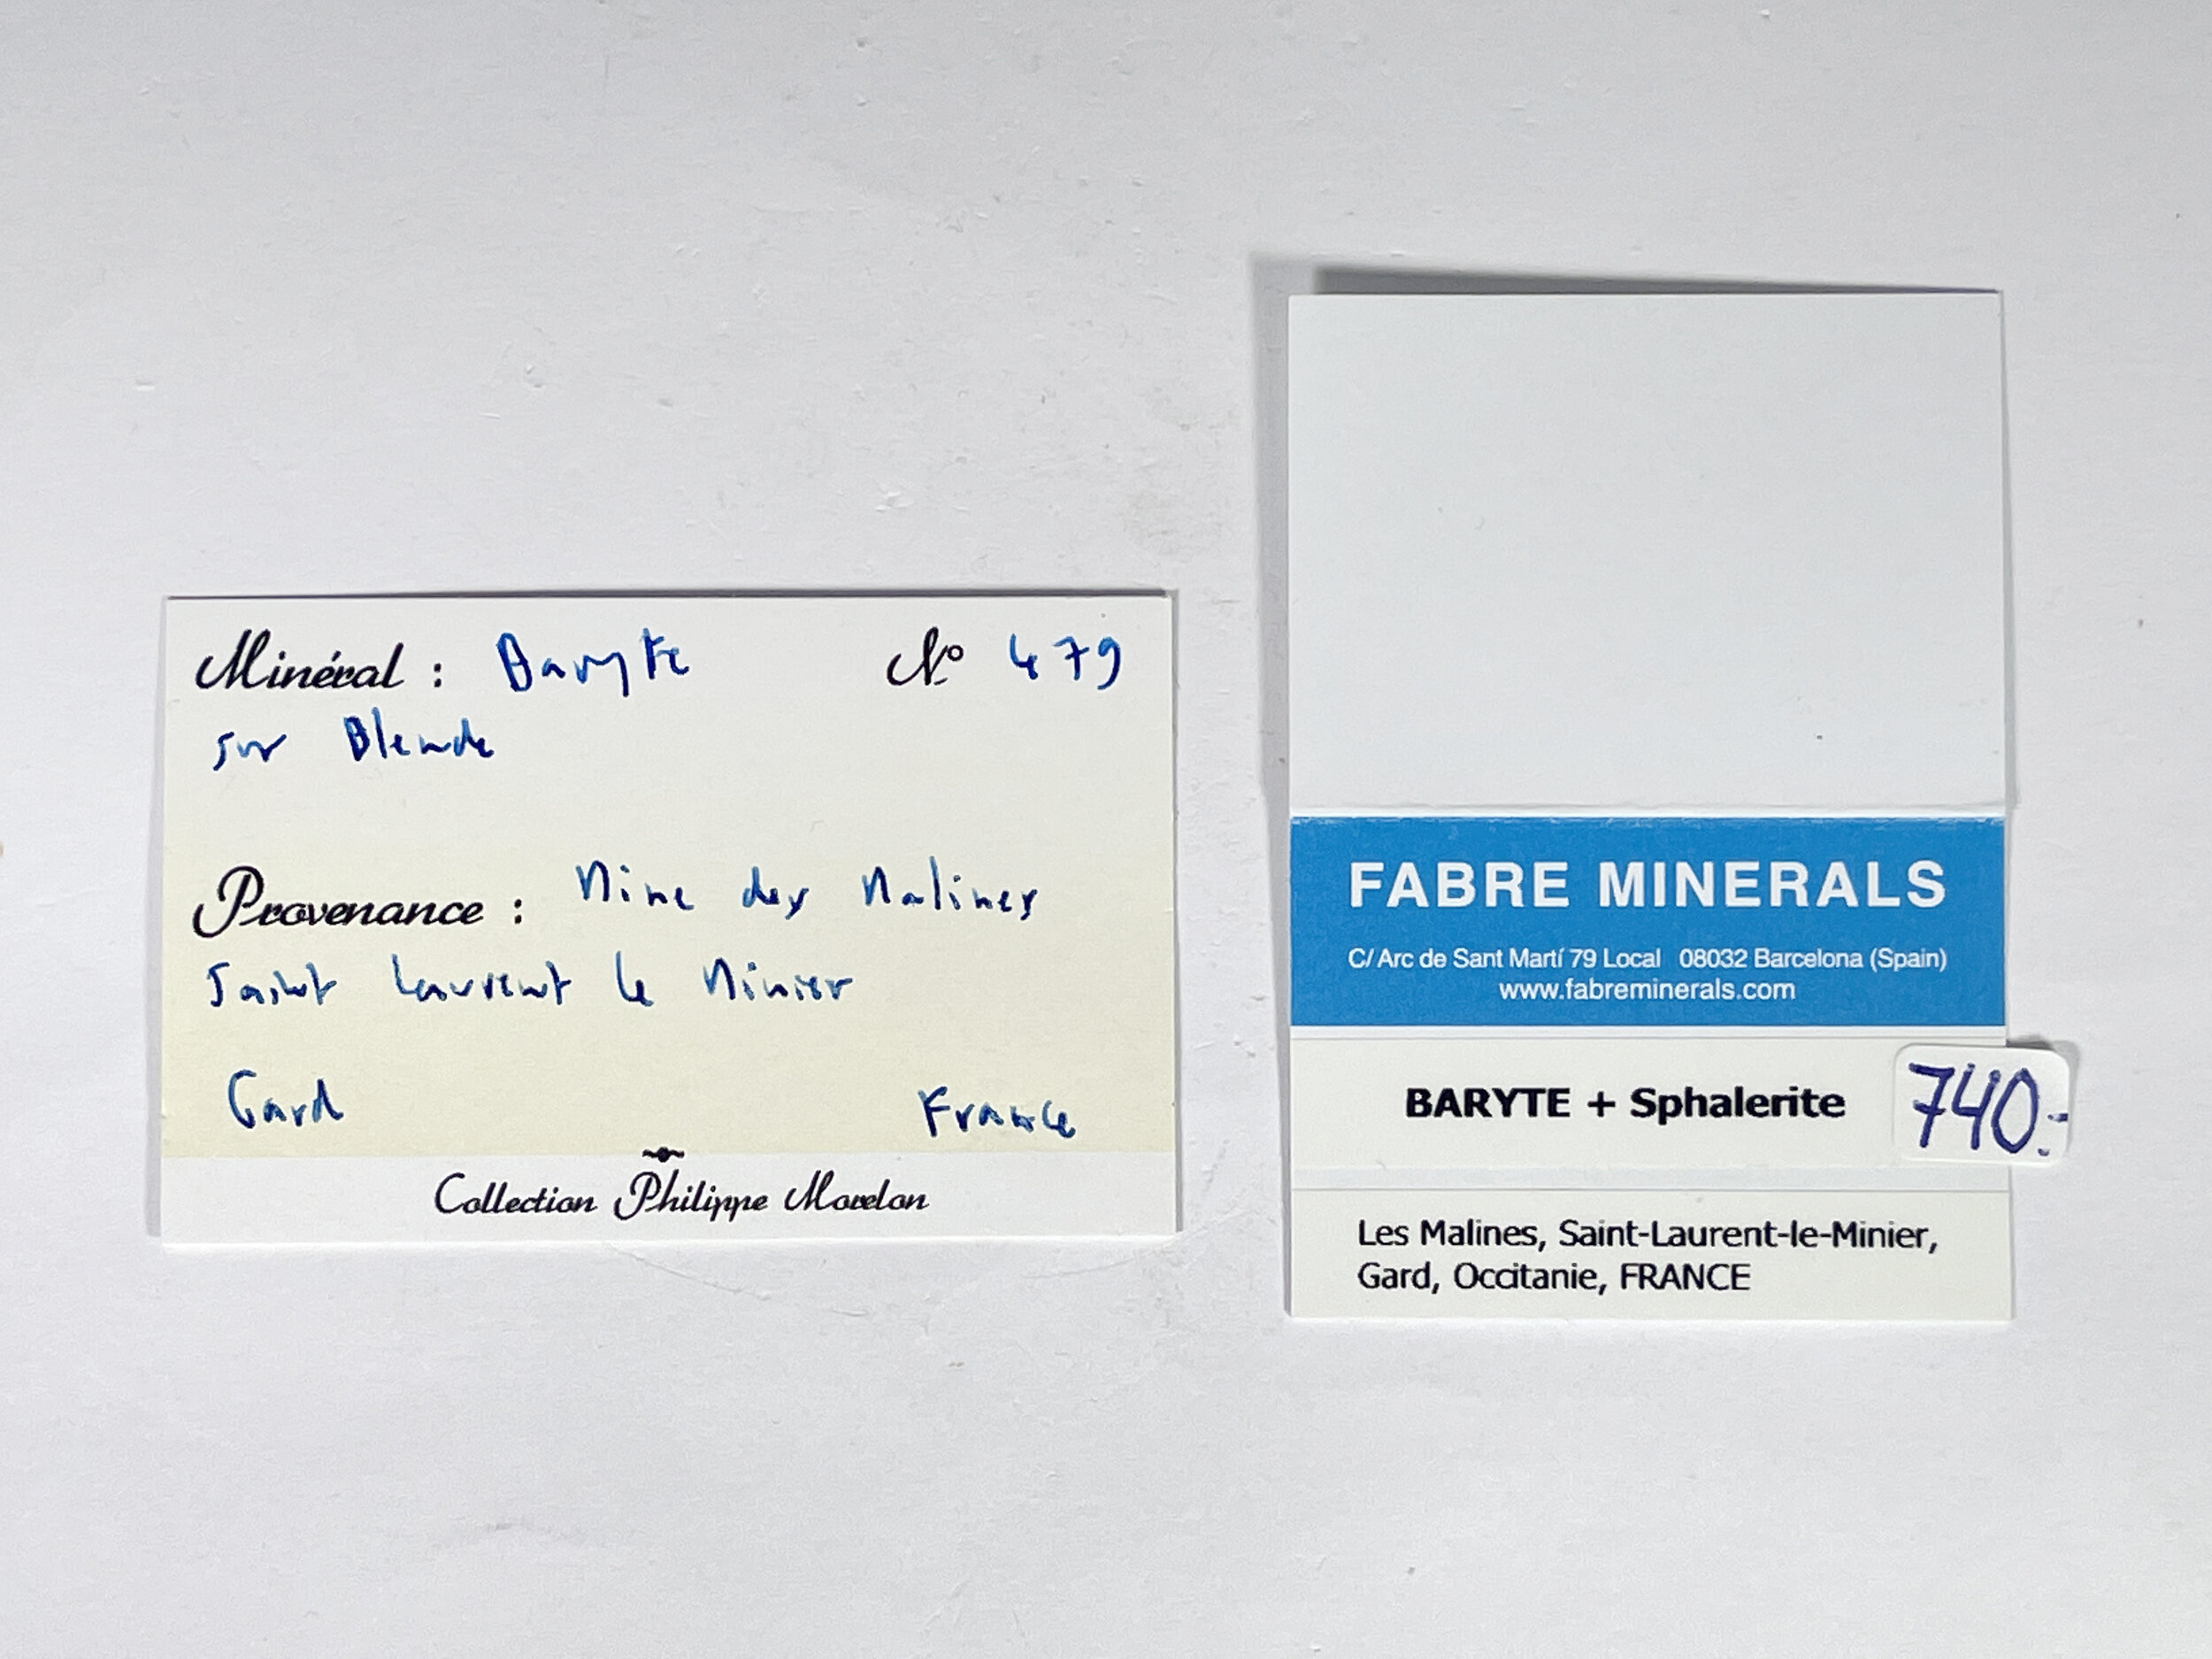 Minéral : Baryte N° 479
sur Blende
Provenance : Mine des Malines
Saint Laurent le Minier
Gard France
Collection Philippe Morelon
FABRE MINERALS
C/ Arc de Sant Martí 79 Local 08032 Barcelona (Spain)
www.fabreminerals.com
BARYTE + Sphalerite
740.-
Les Malines, Saint-Laurent-le-Minier,
Gard, Occitanie, FRANCE